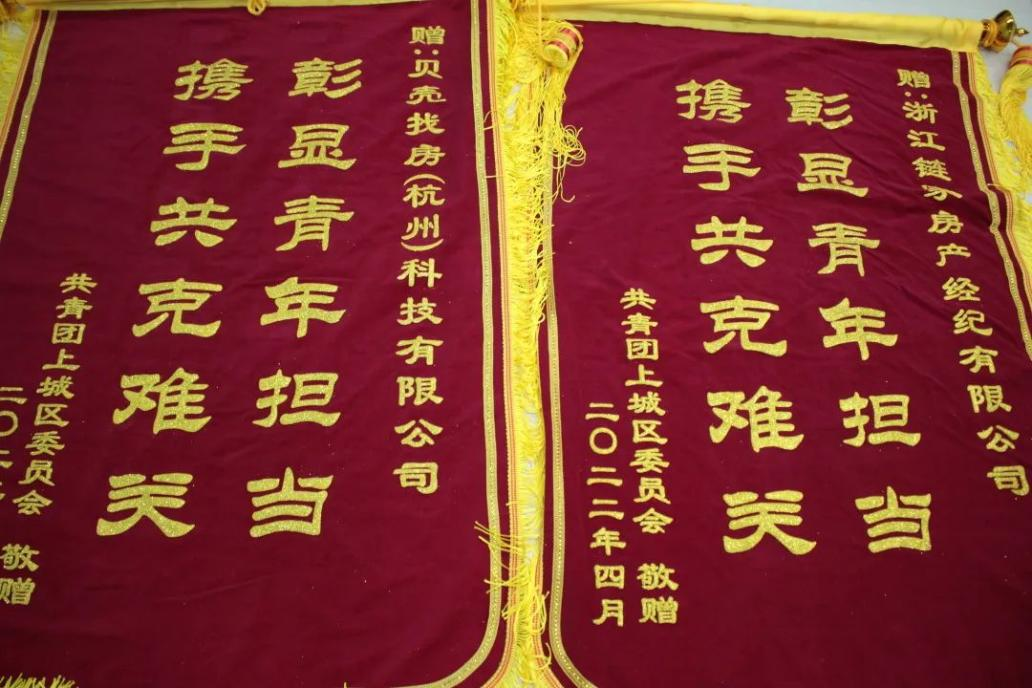 赠:贝壳找房(杭州)科技有限公司
彰显青年担当
携手共克难关
共青团上城区委员会 敬赠
二〇二
赠:浙江链家房产经纪有限公司
彰显青年担当
携手共克难关
共青团上城区委员会 敬赠
二〇二二年四月